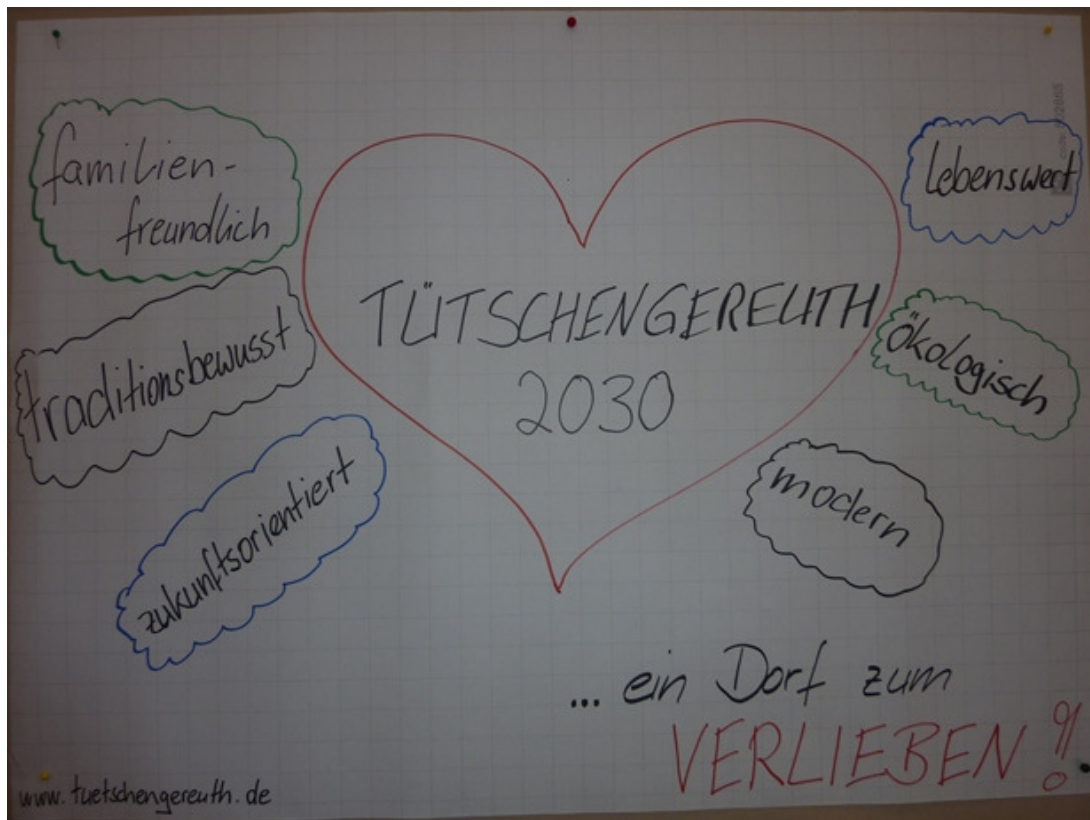 familien-
freundlich
traditionsbewusst
zukunftsorientiert
TÜTSCHENGEREUTH
2030
lebenswert
ökologisch
modern
... ein Dorf zum
VERLIEBEN!
www.tuetschengereuth.de